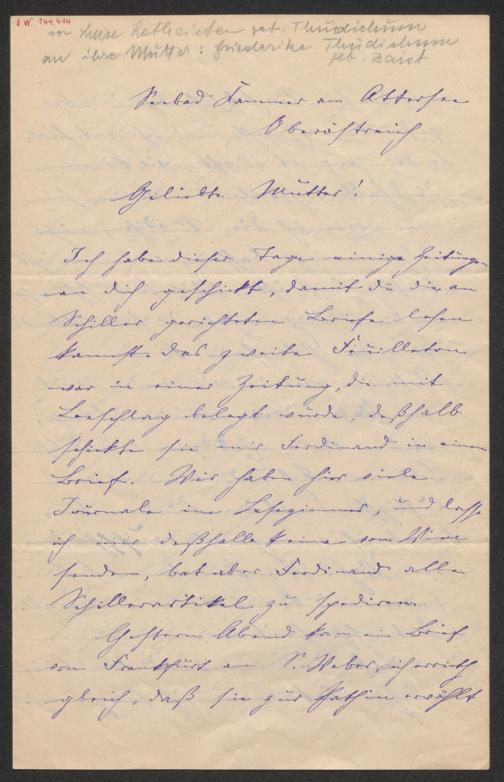 I. N. 144.414
von Luise Lotheissen geb. Thudichum
an ihre Mutter: Friederike Thudichum
geb. Baist
Seebad Kammer am Attersee
Oberöstreich
Geliebte Mutter!
Ich habe dieser Tage einige Zeitungen
an dich geschickt, damit du die an
Schiller gerichteten Briefe lesen
kannst. Das zweite Feuilleton
war in einer Zeitung, die mit
Beschlag belegt wurde, deßhalb
schickte sie mir Ferdinand in einem
Brief. Wir haben hier viele
Journale im Lesezimmer, und lasse
ich mir deßhalb keine von Wien
senden, bat aber Ferdinand alle
Schillerartikel zu spediren.
Gestern Abend kam ein Brief
von Frankfurt an S. Weber, ich errieth
gleich, daß sie zur Pathin erwählt